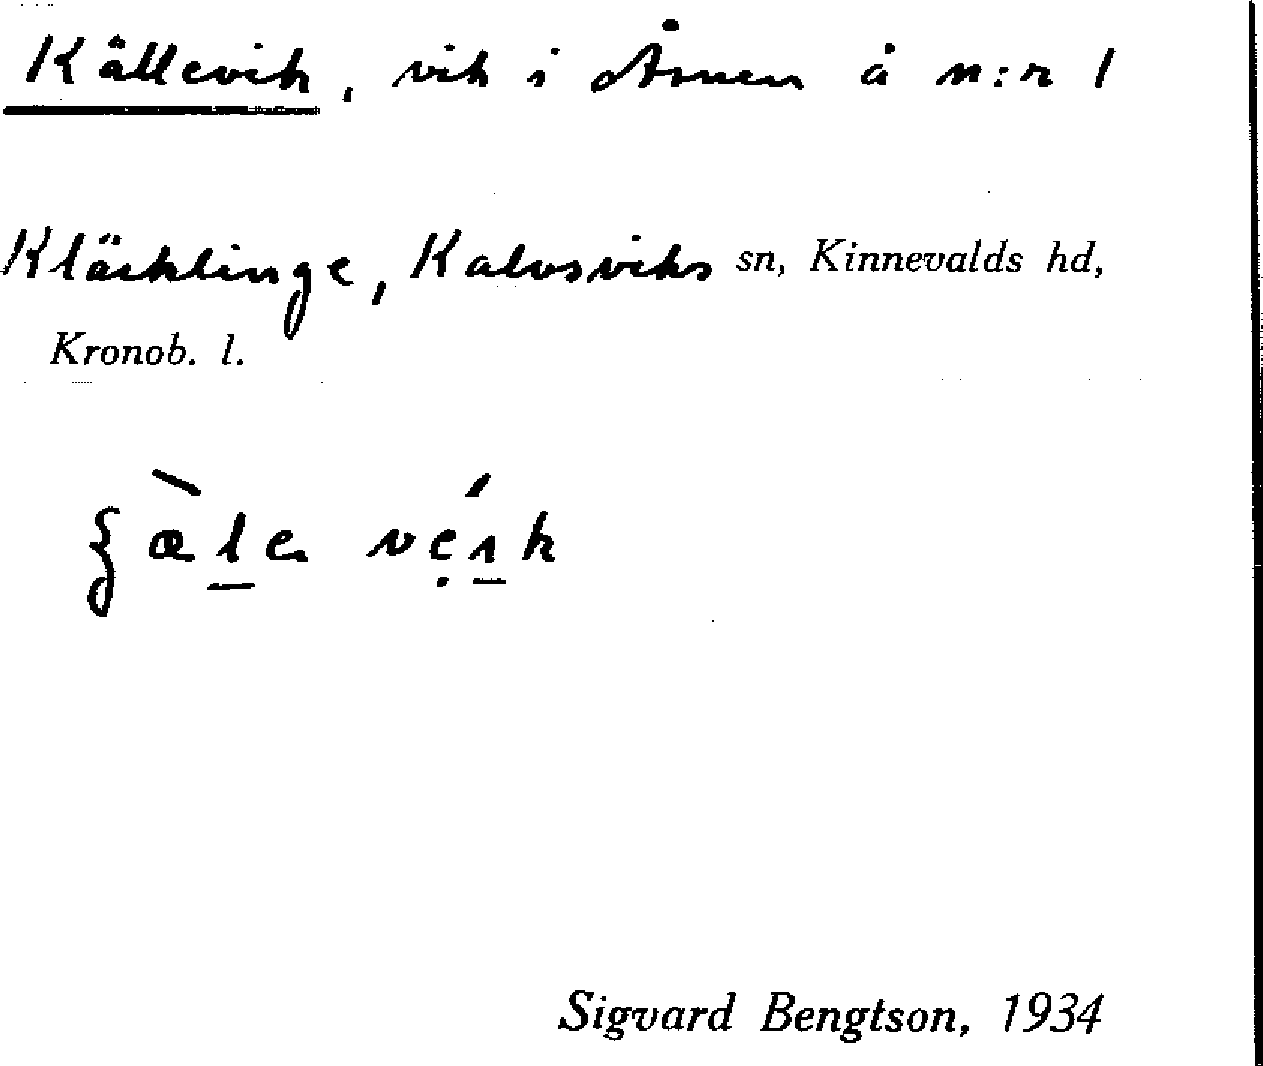 Källevik, vik i Åsnen å n:r 1
Kläcklinge, Kalvsviks sn, Kinnevalds hd,
Kronob. l.
Sigvard Bengtson, 1934